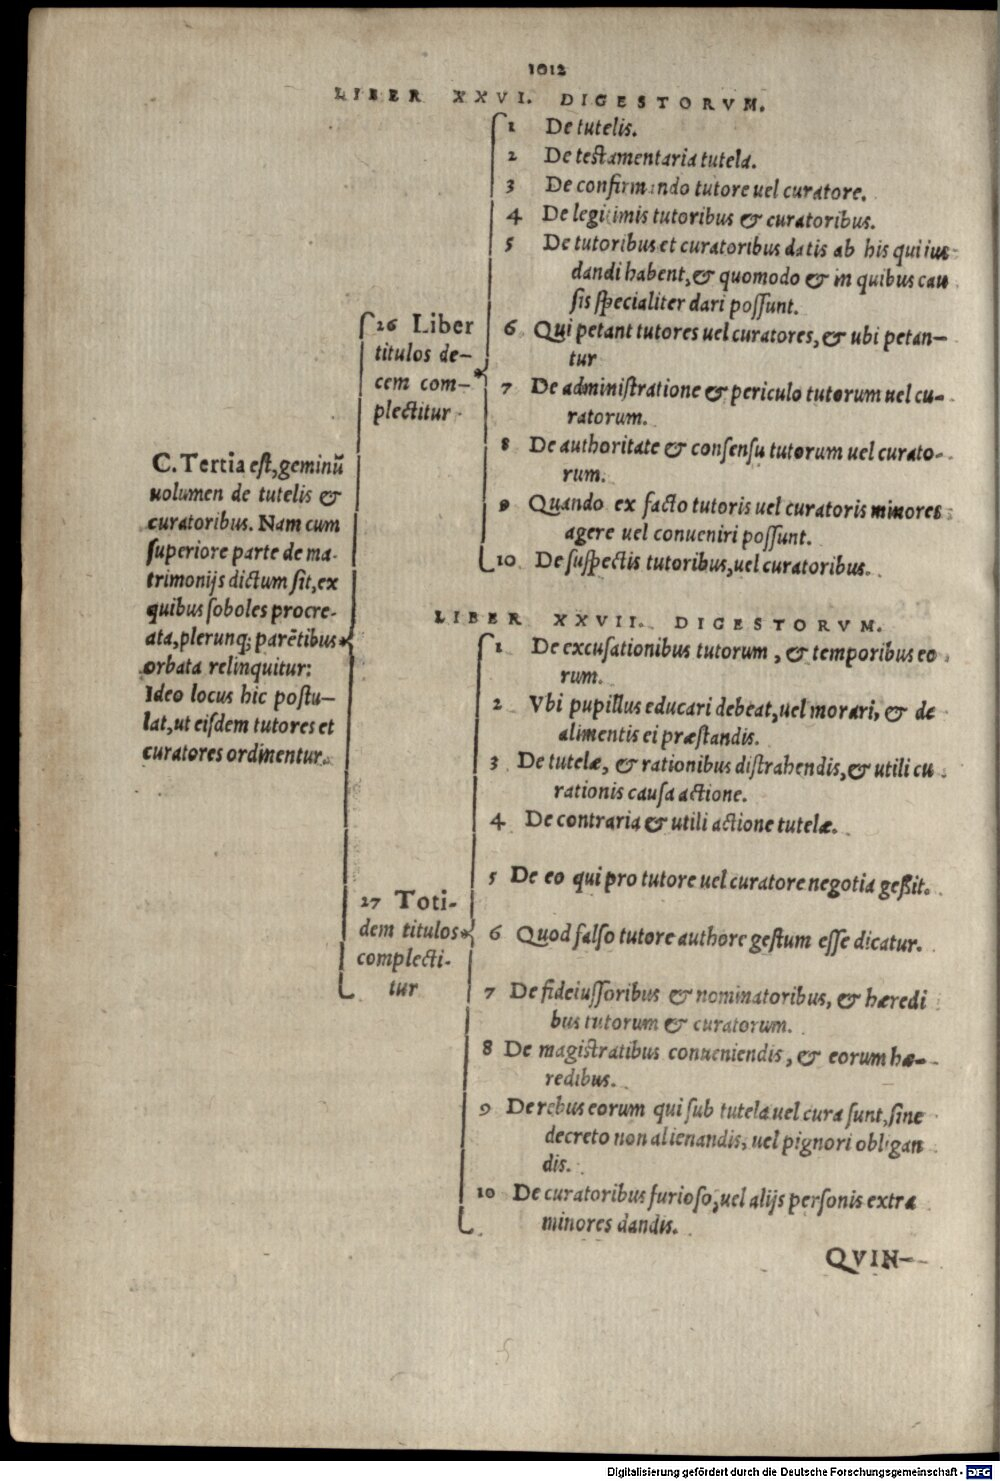 1012
LIBER XXVI. DIGESTORVM.
1 De tutelis.
2 De testamentaria tutela.
3 De confirmando tutore uel curatore.
4 De legitimis tutoribus & curatoribus.
5 De tutoribus et curatoribus datis ab his qui ius
dandi habent, & quomodo & in quibus cau
sis specialiter dari possunt.
6 Qui petant tutores uel curatores, & ubi petan-
tur
7 De administratione & periculo tutorum uel cu-
ratorum.
8 De authoritate & consensu tutorum uel curato-
rum.
9 Quando ex facto tutoris uel curatoris minores
agere uel conueniri possunt.
10 De suspectis tutoribus, uel curatoribus.
26 Liber
titulos de-
cem com-
plectitur
C. Tertia est, geminũ
uolumen de tutelis &
curatoribus. Nam cum
superiore parte de ma-
trimonijs dictum sit, ex
quibus soboles procre-
ata, plerunq; parẽtibus
orbata relinquitur:
Ideo locus hic postu-
lat, ut eisdem tutores et
curatores ordinentur.
LIBER XXVII. DIGESTORVM.
1 De excusationibus tutorum, & temporibus eo
rum.
2 Vbi pupillus educari debeat, uel morari, & de
alimentis ei præstandis.
3 De tutelæ, & rationibus distrahendis, & utili cu
rationis causa actione.
4 De contraria & utili actione tutelæ.
5 De eo qui pro tutore uel curatore negotia geßit.
6 Quod falso tutore authore gestum esse dicatur.
7 De fideiussoribus & nominatoribus, & hæredi
bus tutorum & curatorum.
8 De magistratibus conueniendis, & eorum hæ-
redibus.
9 De rebus eorum qui sub tutela uel cura sunt, sine
decreto non alienandis, uel pignori obligan
dis.
10 De curatoribus furioso, uel alijs personis extra
minores dandis.
27 Toti-
dem titulos
complecti-
tur
QVIN-
Digitalisierung gefördert durch die Deutsche Forschungsgemeinschaft - DFG